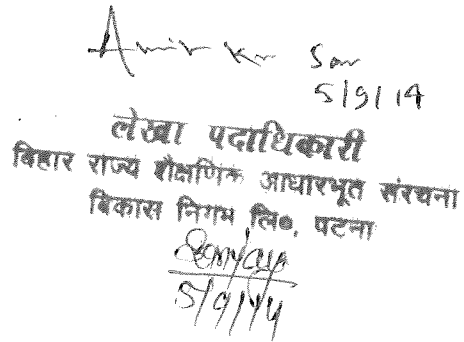 Amir Kr Sar
5/9/14
लेखा पदाधिकारी
बिहार राज्य शैक्षणिक आधारभूत संरचना
बिकास निगम लि०, पटना
5/9/14